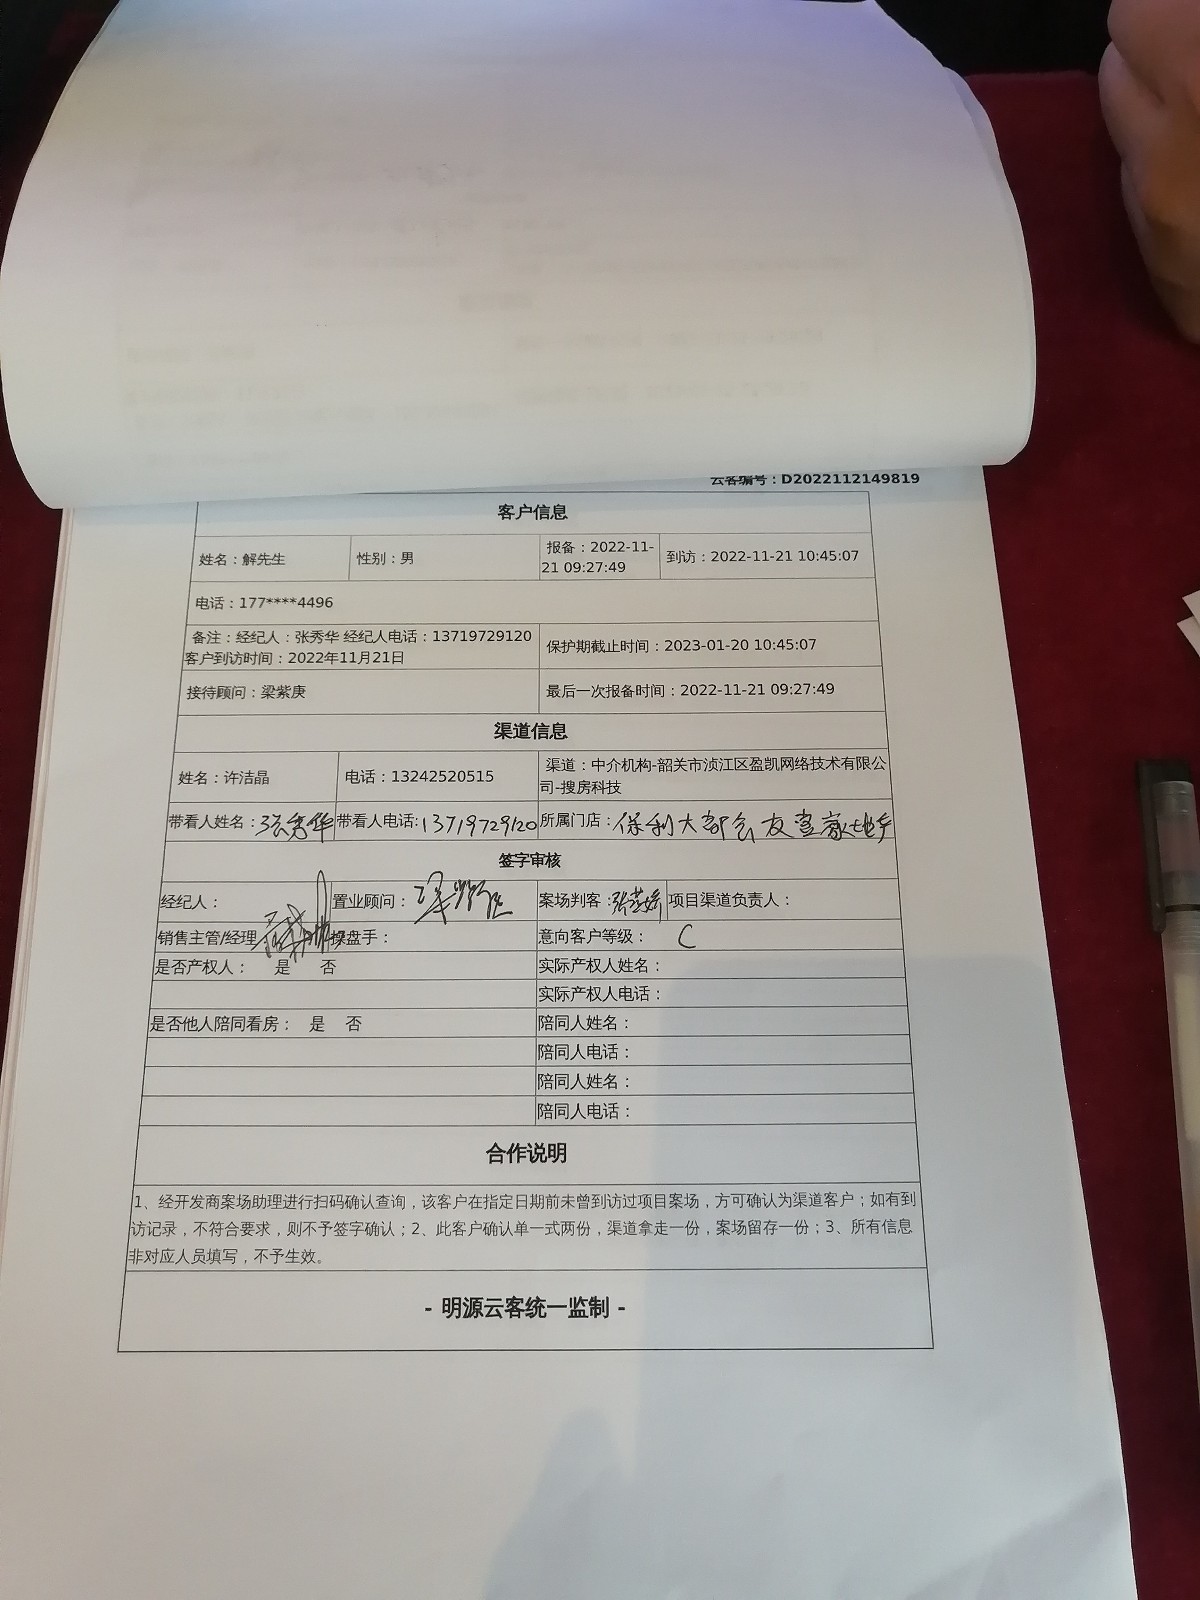 云客编号：D2022112149819
客户信息
姓名：解先生 性别：男 报备：2022-11-21 09:27:49 到访：2022-11-21 10:45:07
电话：177****4496
备注：经纪人：张秀华 经纪人电话：13719729120
客户到访时间：2022年11月21日
保护期截止时间：2023-01-20 10:45:07
接待顾问：梁紫庚 最后一次报备时间：2022-11-21 09:27:49
渠道信息
姓名：许洁晶 电话：13242520515 渠道：中介机构-韶关市浈江区盈凯网络技术有限公司-搜房科技
带看人姓名：张秀华 带看人电话：13719729120 所属门店：保利大都会友壹家地产
签字审核
经纪人： 置业顾问： 案场判客： 项目渠道负责人：
销售主管/经理 操盘手： 意向客户等级： C
是否产权人： 是 否 实际产权人姓名：
实际产权人电话：
是否他人陪同看房： 是 否 陪同人姓名：
陪同人电话：
陪同人姓名：
陪同人电话：
合作说明
1、经开发商案场助理进行扫码确认查询，该客户在指定日期前未曾到访过项目案场，方可确认为渠道客户；如有到
访记录，不符合要求，则不予签字确认；2、此客户确认单一式两份，渠道拿走一份，案场留存一份；3、所有信息
非对应人员填写，不予生效。
- 明源云客统一监制 -